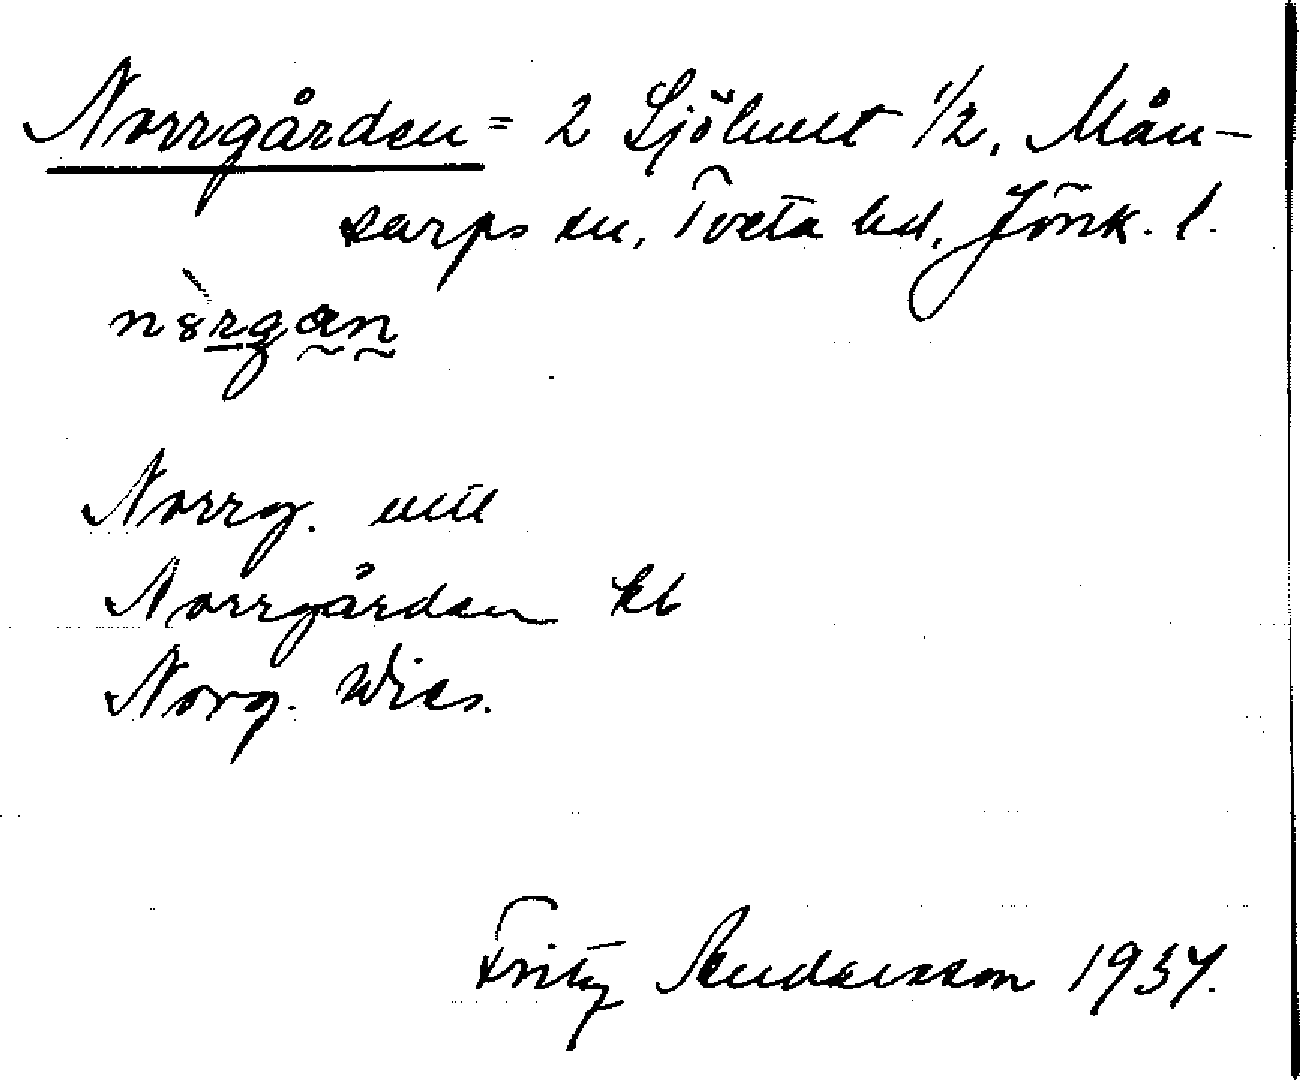 Norrgården = 2 Sjöhult 1/2, Mån-
sarps sn, Tveta hd, Jönk. l.
Norrg. mtl
Norrgården kb
Norg. Wies.
Fritz Andersson 1934.